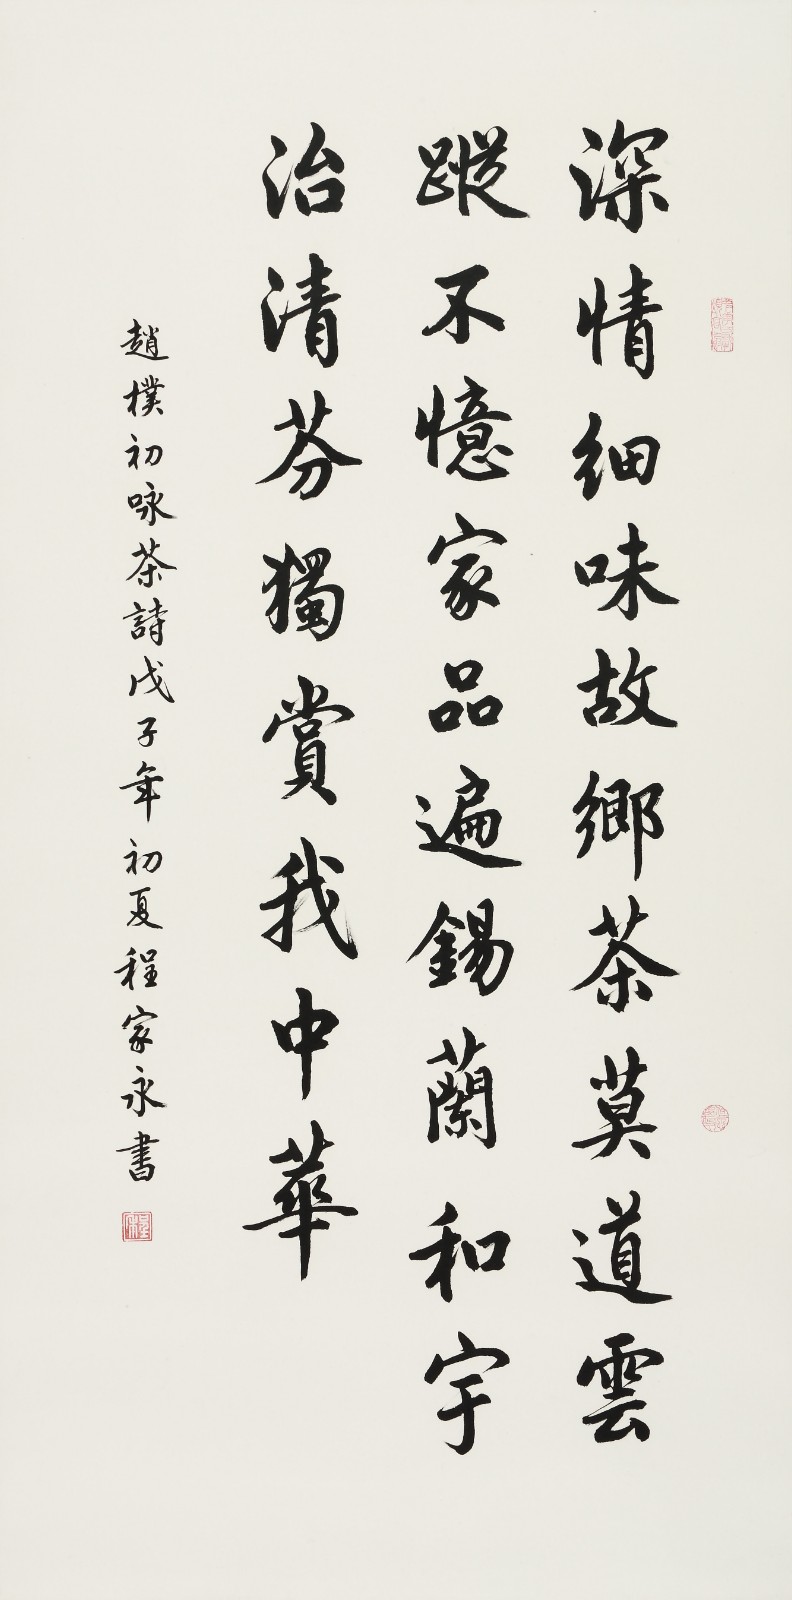 深情細味故鄉茶莫道雲
蹤不憶家品遍錫蘭和宇
治清芬獨賞我中華
趙樸初咏茶詩戊子年初夏程家永書